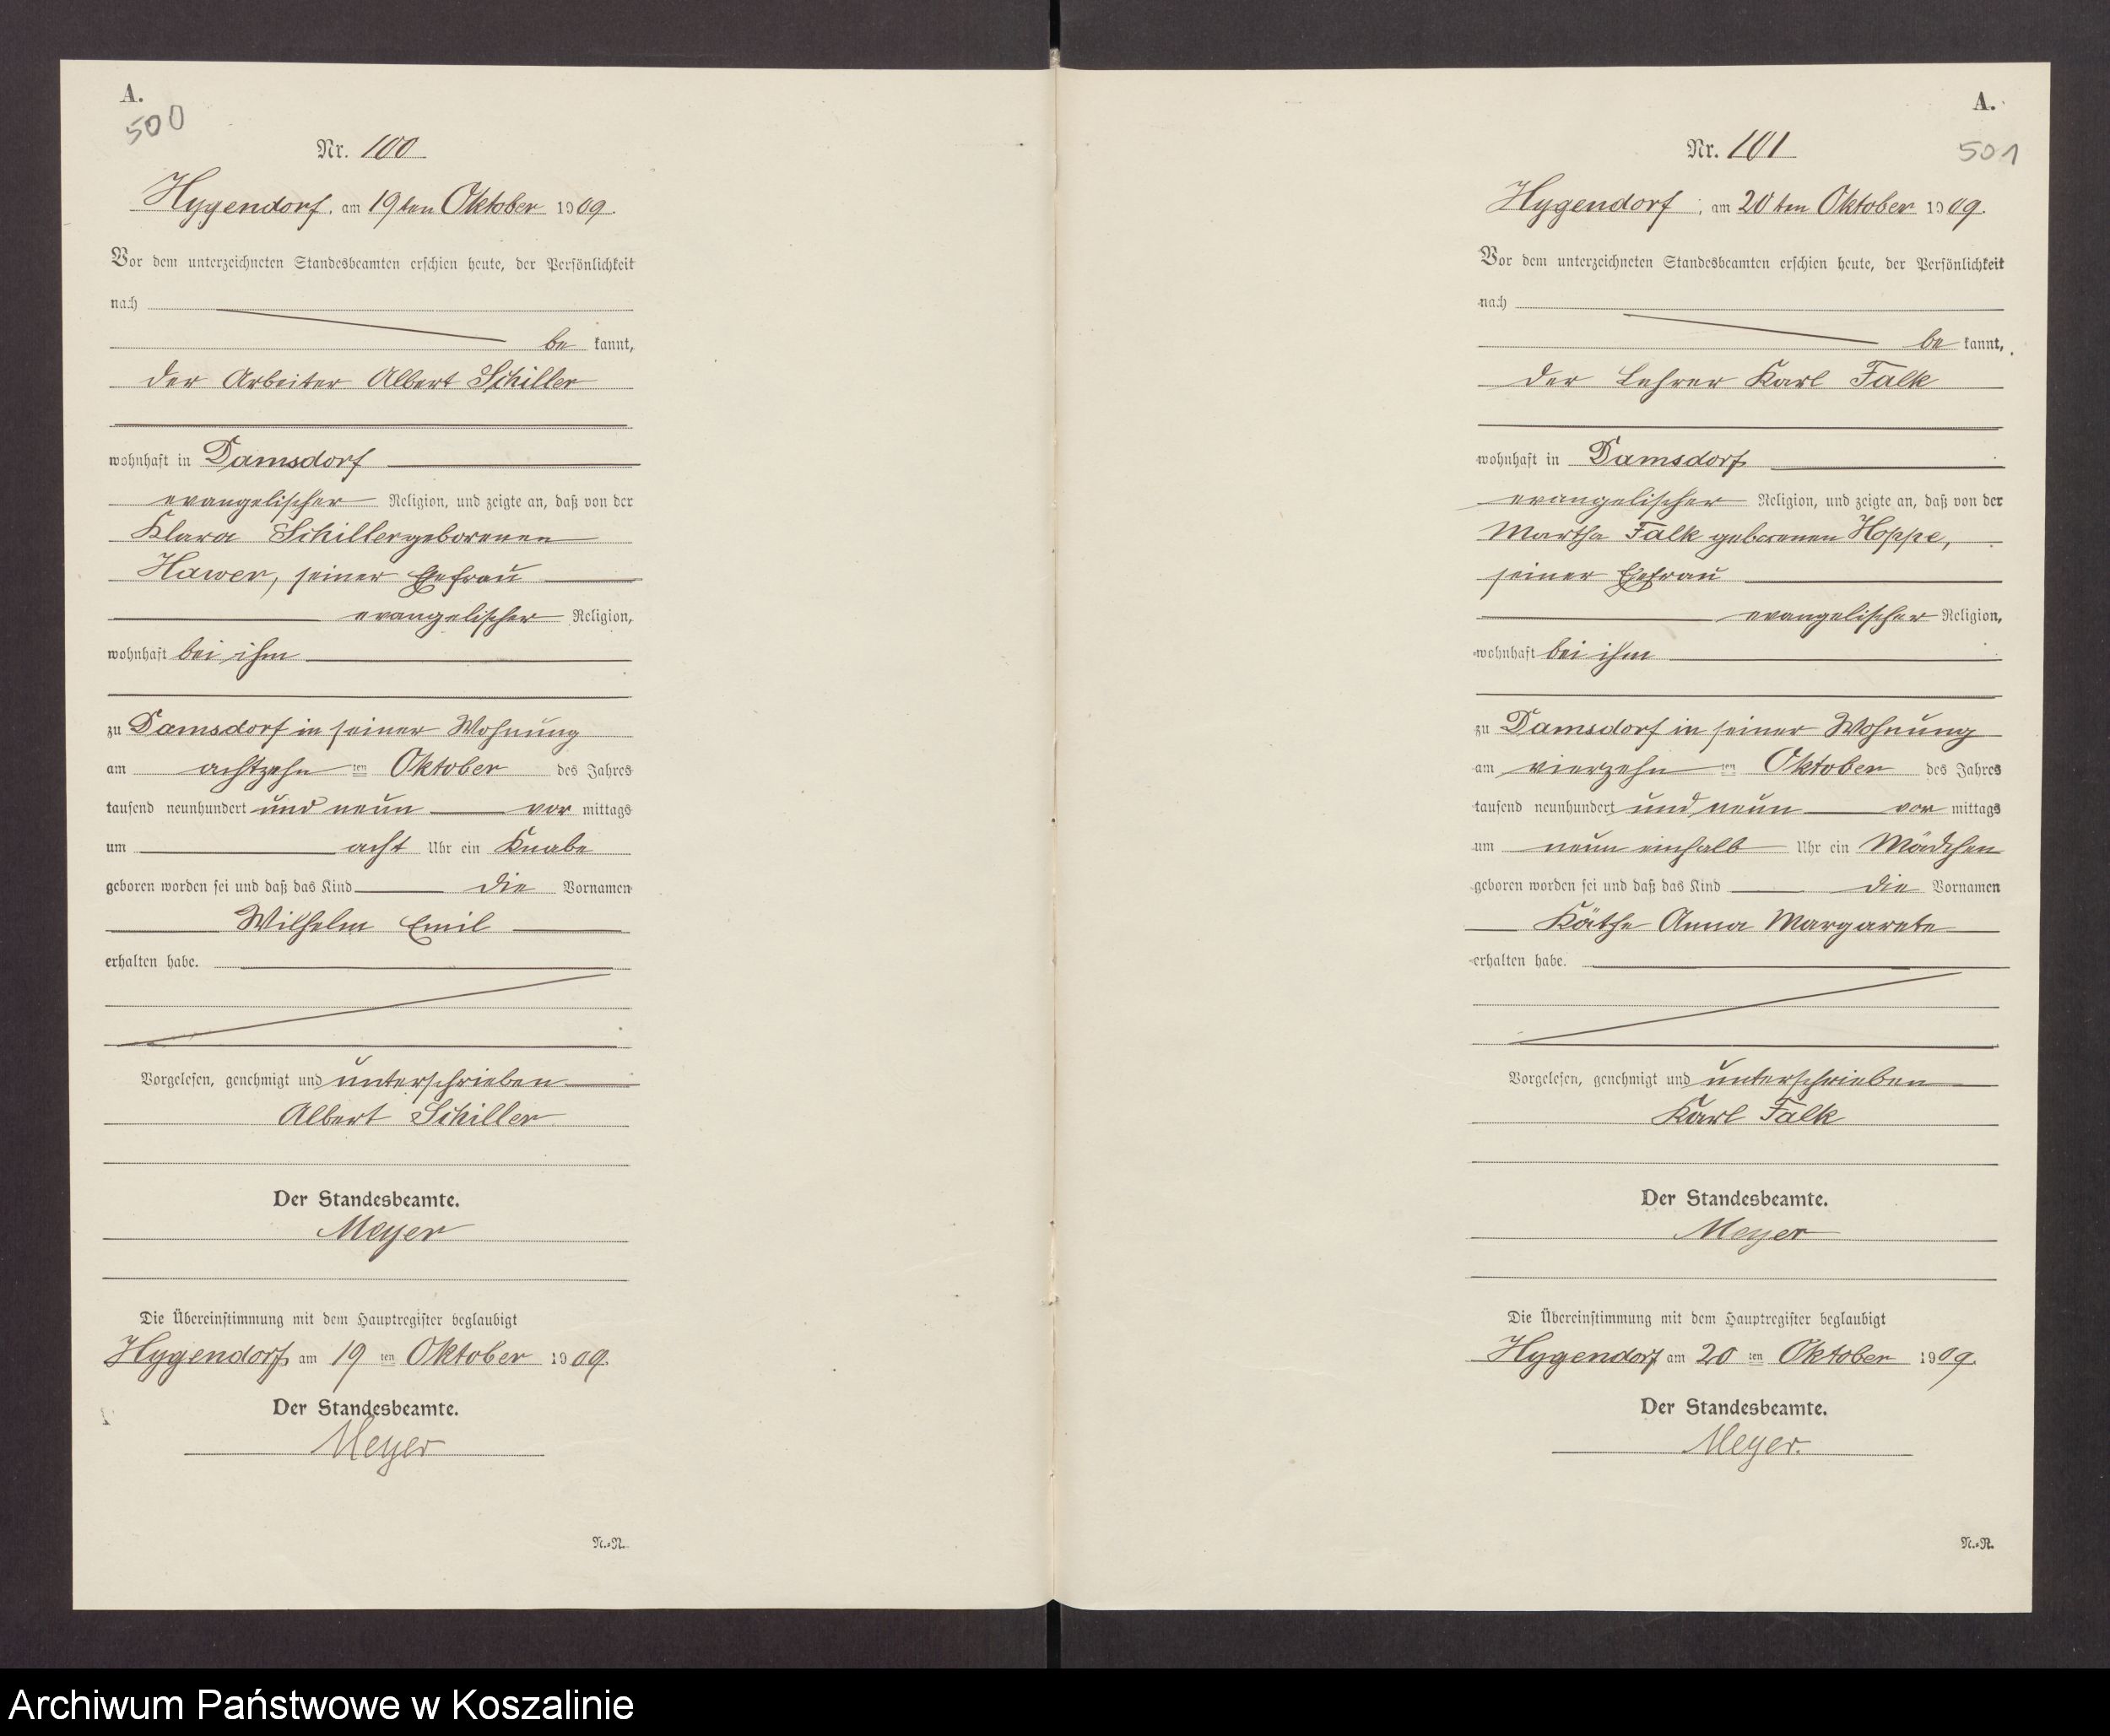 A.
500
Nr. 100
Hygendorf, am 19ten Oktober 1909.
Vor dem unterzeichneten Standesbeamten erschien heute, der Persönlichkeit
nach
be kannt,
der Arbeiter Albert Schiller
wohnhaft in Damsdorf
evangelischer Religion, und zeigte an, daß von der
Klara Schiller geborenen
Hawer, seiner Ehefrau
evangelischer Religion,
wohnhaft bei ihm
zu Damsdorf in seiner Wohnung
am achtzehn ten Oktober des Jahres
tausend neunhundert und neun vor mittags
um acht Uhr ein Knabe
geboren worden sei und daß das Kind die Vornamen
Wilhelm Emil
erhalten habe.
Vorgelesen, genehmigt und unterschrieben
Albert Schiller
Der Standesbeamte.
Meyer
Die Übereinstimmung mit dem Hauptregister beglaubigt
Hygendorf am 19 ten Oktober 1909.
Der Standesbeamte.
Meyer
N.-R.
A.
501
Nr. 101
Hygendorf, am 20ten Oktober 1909.
Vor dem unterzeichneten Standesbeamten erschien heute, der Persönlichkeit
nach
be kannt,
der Lehrer Karl Falk
wohnhaft in Damsdorf
evangelischer Religion, und zeigte an, daß von der
Martha Falk geborenen Hoppe,
seiner Ehefrau
evangelischer Religion,
wohnhaft bei ihm
zu Damsdorf in seiner Wohnung
am vierzehn ten Oktober des Jahres
tausend neunhundert und neun vor mittags
um neun einhalb Uhr ein Mädchen
geboren worden sei und daß das Kind die Vornamen
Käthe Anna Margarete
erhalten habe.
Vorgelesen, genehmigt und unterschrieben
Karl Falk
Der Standesbeamte.
Meyer
Die Übereinstimmung mit dem Hauptregister beglaubigt
Hygendorf am 20 ten Oktober 1909.
Der Standesbeamte.
Meyer.
N.-R.
Archiwum Państwowe w Koszalinie